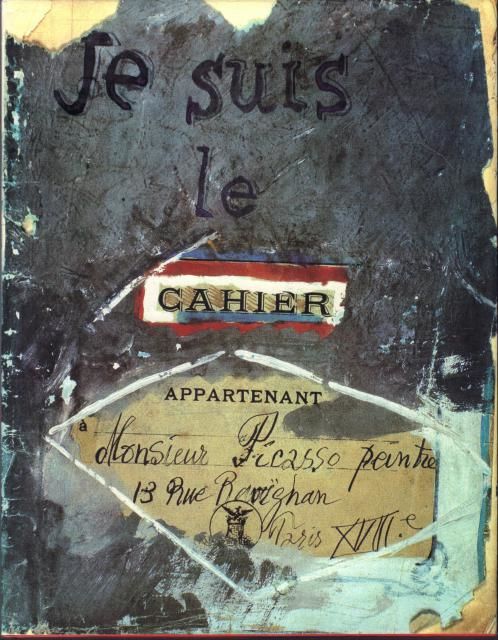 Je suis
le
CAHIER
APPARTENANT
à
Monsieur Picasso peintre
13 Rue Ravignan
Paris XVIII.e